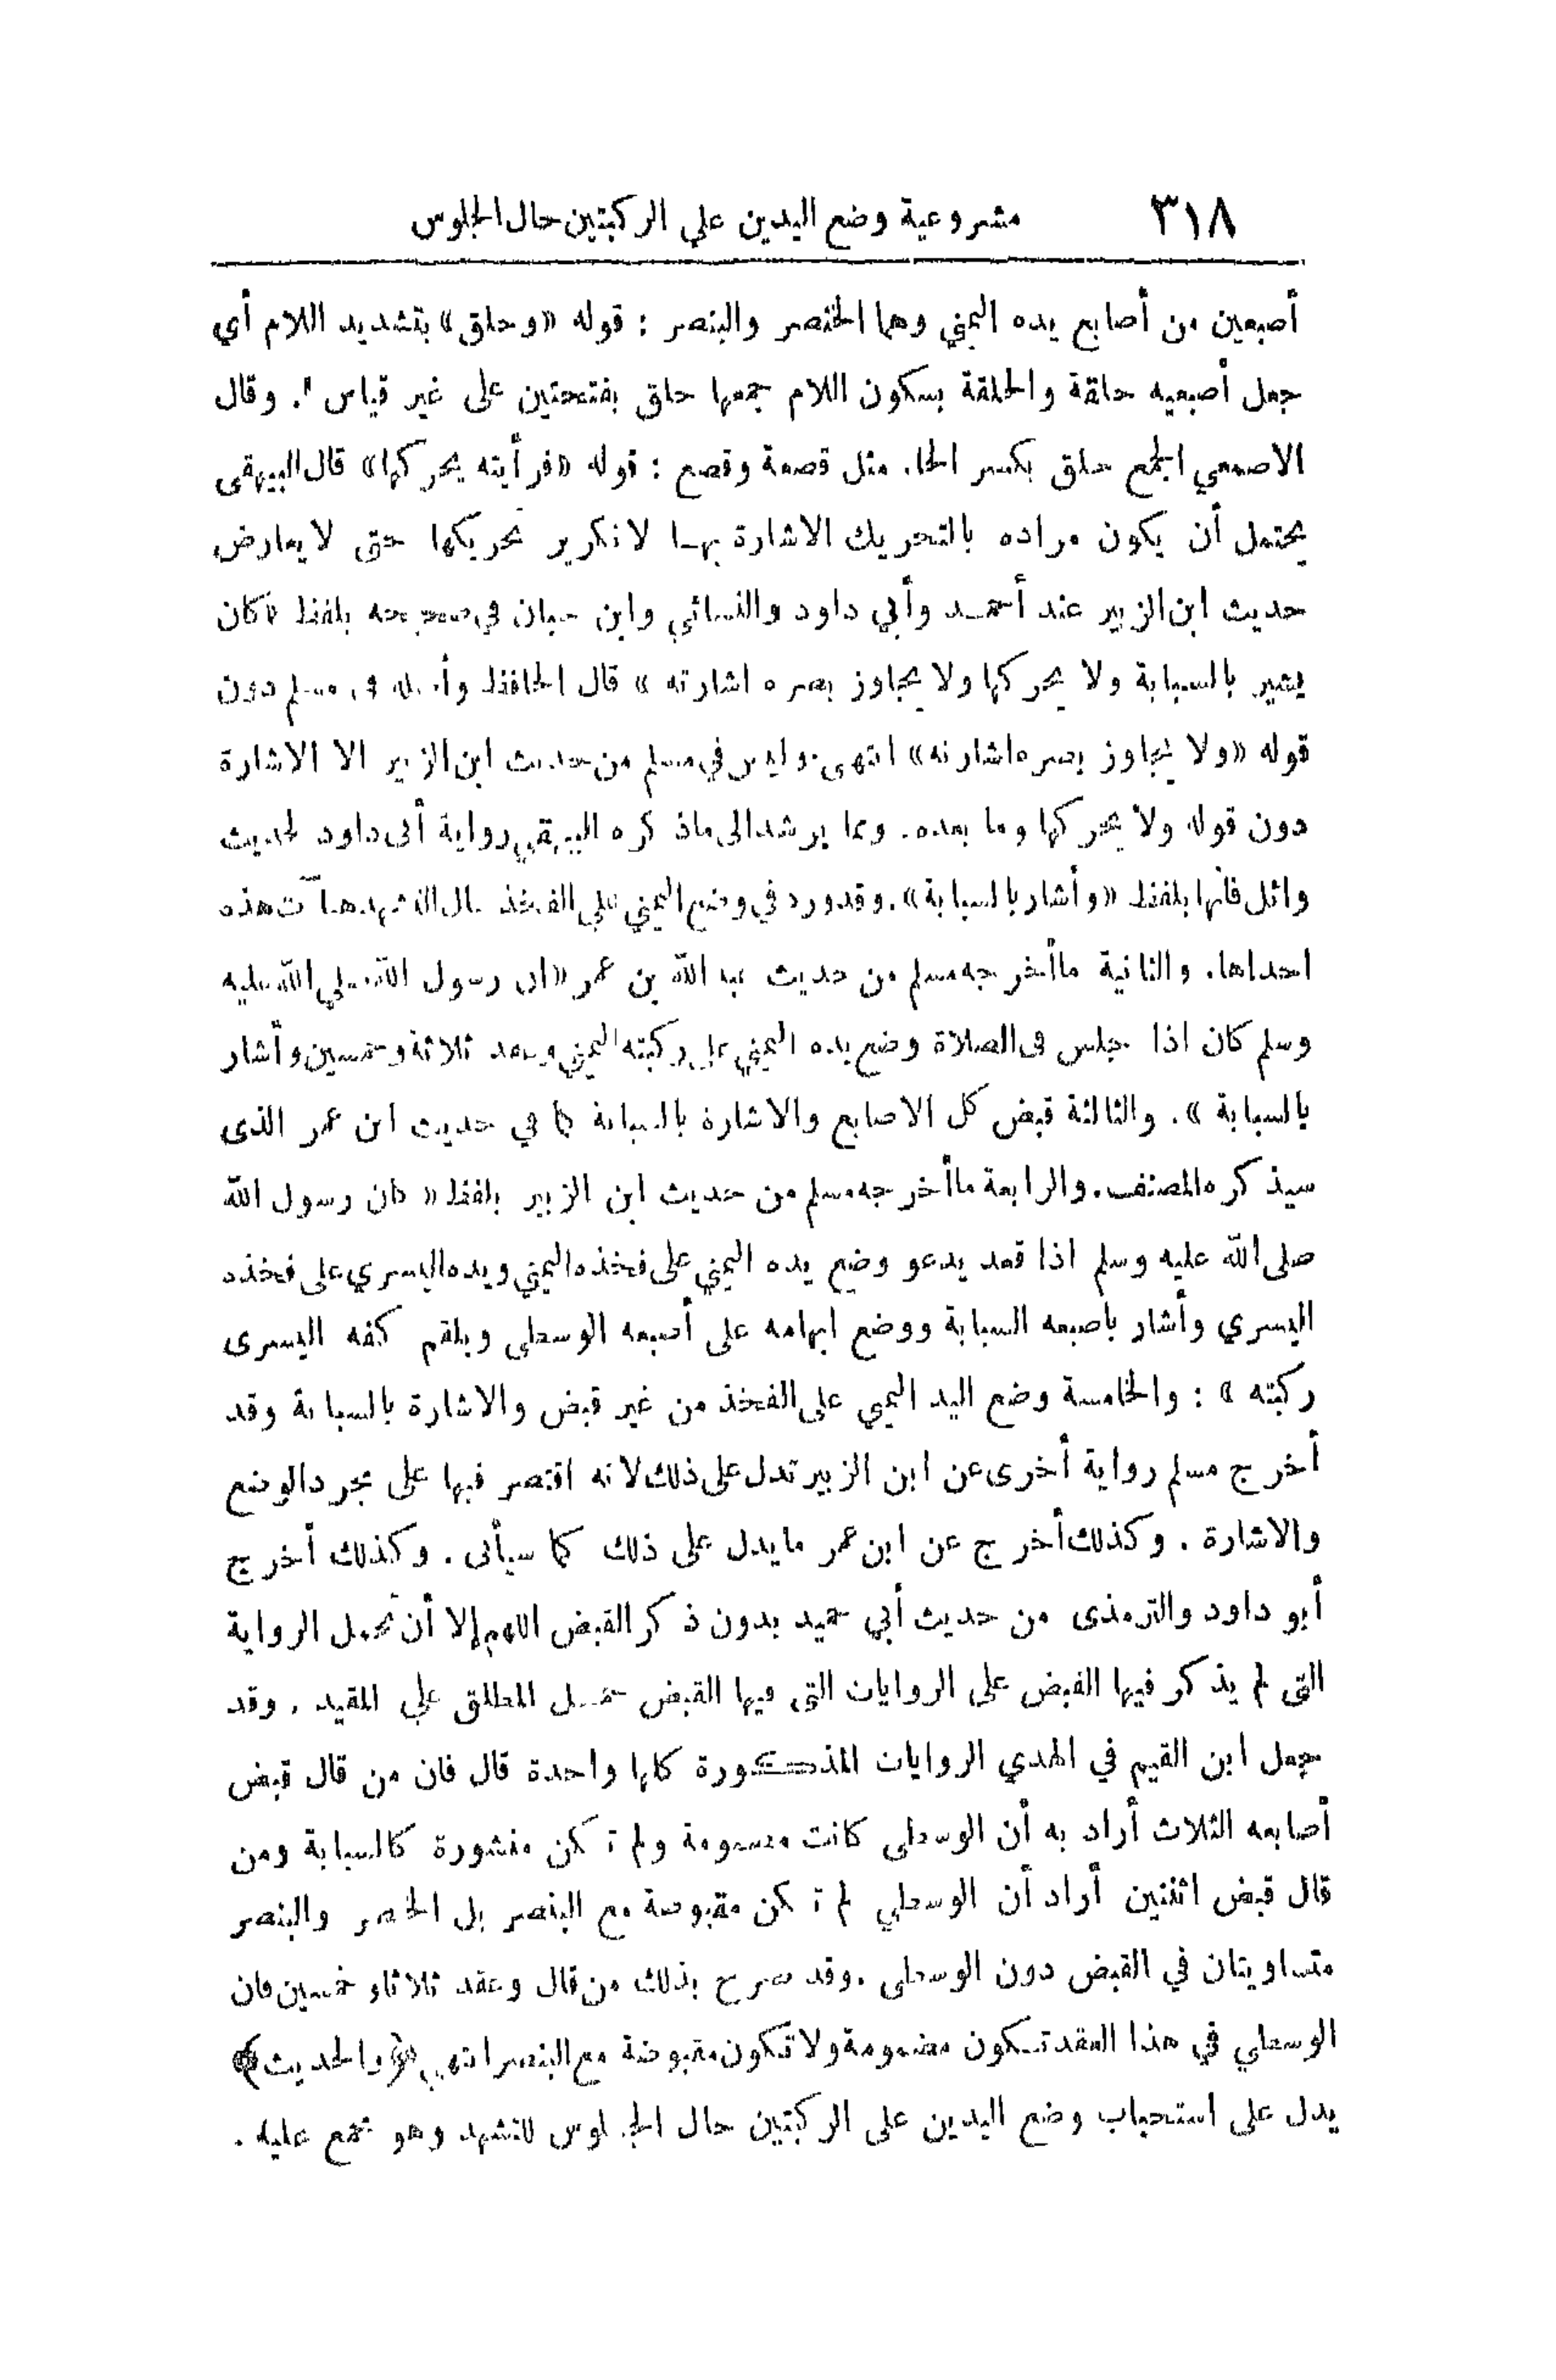 ٣١٨ مشروعية وضع اليدين علي الركبتين حال الجلوس
أصبعين من أصابع يده اليمني وهما الخنصر والبنصر : قوله «وحلق» بتشديد اللام أي
جعل أصبعيه حلقة والحلقة بسكون اللام جمعها حلق بفتحتين على غير قياس . وقال
الاصمعي الجمع حلق بكسر الحا. مثل قصعة وقصع : قوله «فرأيته يحركها» قال البيهقى
يحتمل أن يكون مراده بالتحريك الاشارة بها لا تكرير تحريكها حتى لا يعارض
حديث ابن الزبير عند أحمد وأبي داود والنسائي وابن حبان في صحيحه بلفظ «كان
يشير بالسبابة ولا يحركها ولا يجاوز بصره اشارته» قال الحافظ وأصله في مسلم دون
قوله «ولا يجاوز بصره اشارته» انتهى. وليس في مسلم من حديث ابن الزبير الا الاشارة
دون قوله ولا يحركها وما بعده. ومما يرشد الى ماذكره البيهقي رواية أبى داود لحديث
وائل فانها بلفظ «وأشار بالسبابة». وقدورد في وضع اليمني علي الفخذ حال التشهد هيآت هذه
احداها. والثانية ماأخرجه مسلم من حديث عبد الله بن عمر «ان رسول الله صلي الله عليه
وسلم كان اذا جلس فى الصلاة وضع يده اليمني على ركبته اليمني وعقد ثلاثة وخمسين وأشار
بالسبابة». والثالثة قبض كل الاصابع والاشارة بالسبابة كما في حديث ابن عمر الذى
سيذكره المصنف. والرابعة ماأخرجه مسلم من حديث ابن الزبير بلفظ «كان رسول الله
صلى الله عليه وسلم اذا قعد يدعو وضع يده اليمني على فخذه اليمني ويده اليسري على فخذه
اليسري وأشار باصبعه السبابة ووضع ابهامه على أصبعه الوسطى ويلقم كفه اليسرى
ركبته» : والخامسة وضع اليد اليمني على الفخذ من غير قبض والاشارة بالسبابة وقد
أخرج مسلم رواية أخرى عن ابن الزبير تدل على ذلك لانه اقتصر فيها على مجرد الوضع
والاشارة . وكذلك أخرج عن ابن عمر مايدل على ذلك كما سيأتى . وكذلك أخرج
أبو داود والترمذى من حديث أبي حميد بدون ذكر القبض اللهم إلا أن تحمل الرواية
التى لم يذكر فيها القبض على الروايات التى فيها القبض حمل المطلق علي المقيد . وقد
جعل ابن القيم في الهدي الروايات المذكورة كلها واحدة قال فان من قال قبض
أصابعه الثلاث أراد به أن الوسطى كانت مضمومة ولم تكن منشورة كالسبابة ومن
قال قبض اثنتين أراد أن الوسطي لم تكن مقبوضة مع البنصر بل الخنصر والبنصر
متساويتان في القبض دون الوسطى . وقد صرح بذلك من قال وعقد ثلاثا وخمسين فان
الوسطي في هذا العقد تكون مضمومة ولا تكون مقبوضة مع البنصر انتهي ﴿والحديث﴾
يدل على استحباب وضع اليدين على الركبتين حال الجلوس للتشهد وهو مجمع عليه .